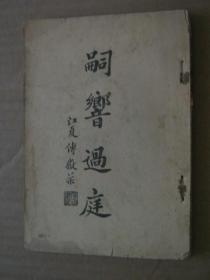 嗣響過庭
江夏傅嶽棻